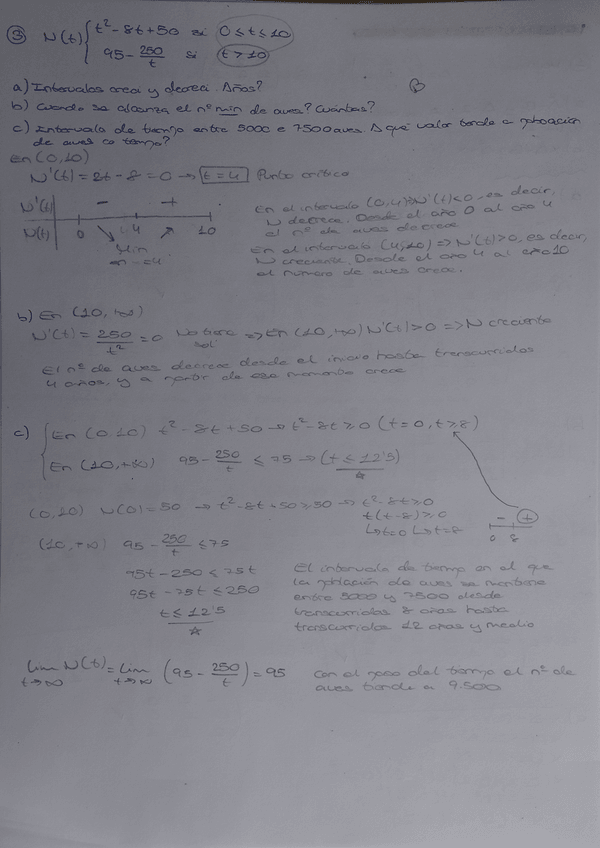 ③ N(t) { t² - 8t + 50 si 0 ≤ t ≤ 10
95 - 250/t si t > 10
a) Intervalos creci y decreci. Años?
b) Cuando se alcanza el nº min de aves? Cuántas?
c) Intervalo de tiempo entre 5000 e 7500 aves. A qué valor tiende a poboacion
de aves co tempo?
En (0,10)
N'(t) = 2t - 8 = 0 → t = 4 Punto crítico
N'(t) - +
N(t) 0 ↘ 4 ↗ 10
Min
t = 4
En el intervalo (0,4) N'(t) < 0, es decir,
N decrece. Desde el año 0 al año 4
el nº de aves decrece
En el intervalo (4,10) => N'(t) > 0, es decir,
N creciente. Desde el año 4 al año 10
el número de aves crece.
b) En (10, +∞)
N'(t) = 250/t² = 0 No tiene sol => En (10, +∞) N'(t) > 0 => N creciente
El nº de aves decrece desde el inicio hasta transcurridos
4 años, y a partir de ese momento crece
c) { En (0,10) t² - 8t + 50 → t² - 8t ≥ 0 (t = 0, t ≥ 8)
En (10, +∞) 95 - 250/t ≤ 75 → (t ≤ 12'5)
(0,10) N(0) = 50 → t² - 8t + 50 ≥ 50 → t² - 8t ≥ 0
t(t - 8) ≥ 0
↳ t=0 ↳ t=8
- +
0 8
(10, +∞) 95 - 250/t ≤ 75
95t - 250 ≤ 75t
95t - 75t ≤ 250
t ≤ 12'5
El intervalo de tiempo en el que
la población de aves se mantiene
entre 5000 y 7500 desde
transcurridos 8 años hasta
transcurridos 12 años y medio
lim t→∞ N(t) = lim t→∞ (95 - 250/t) = 95
Con el paso del tiempo el nº de
aves tiende a 9.500